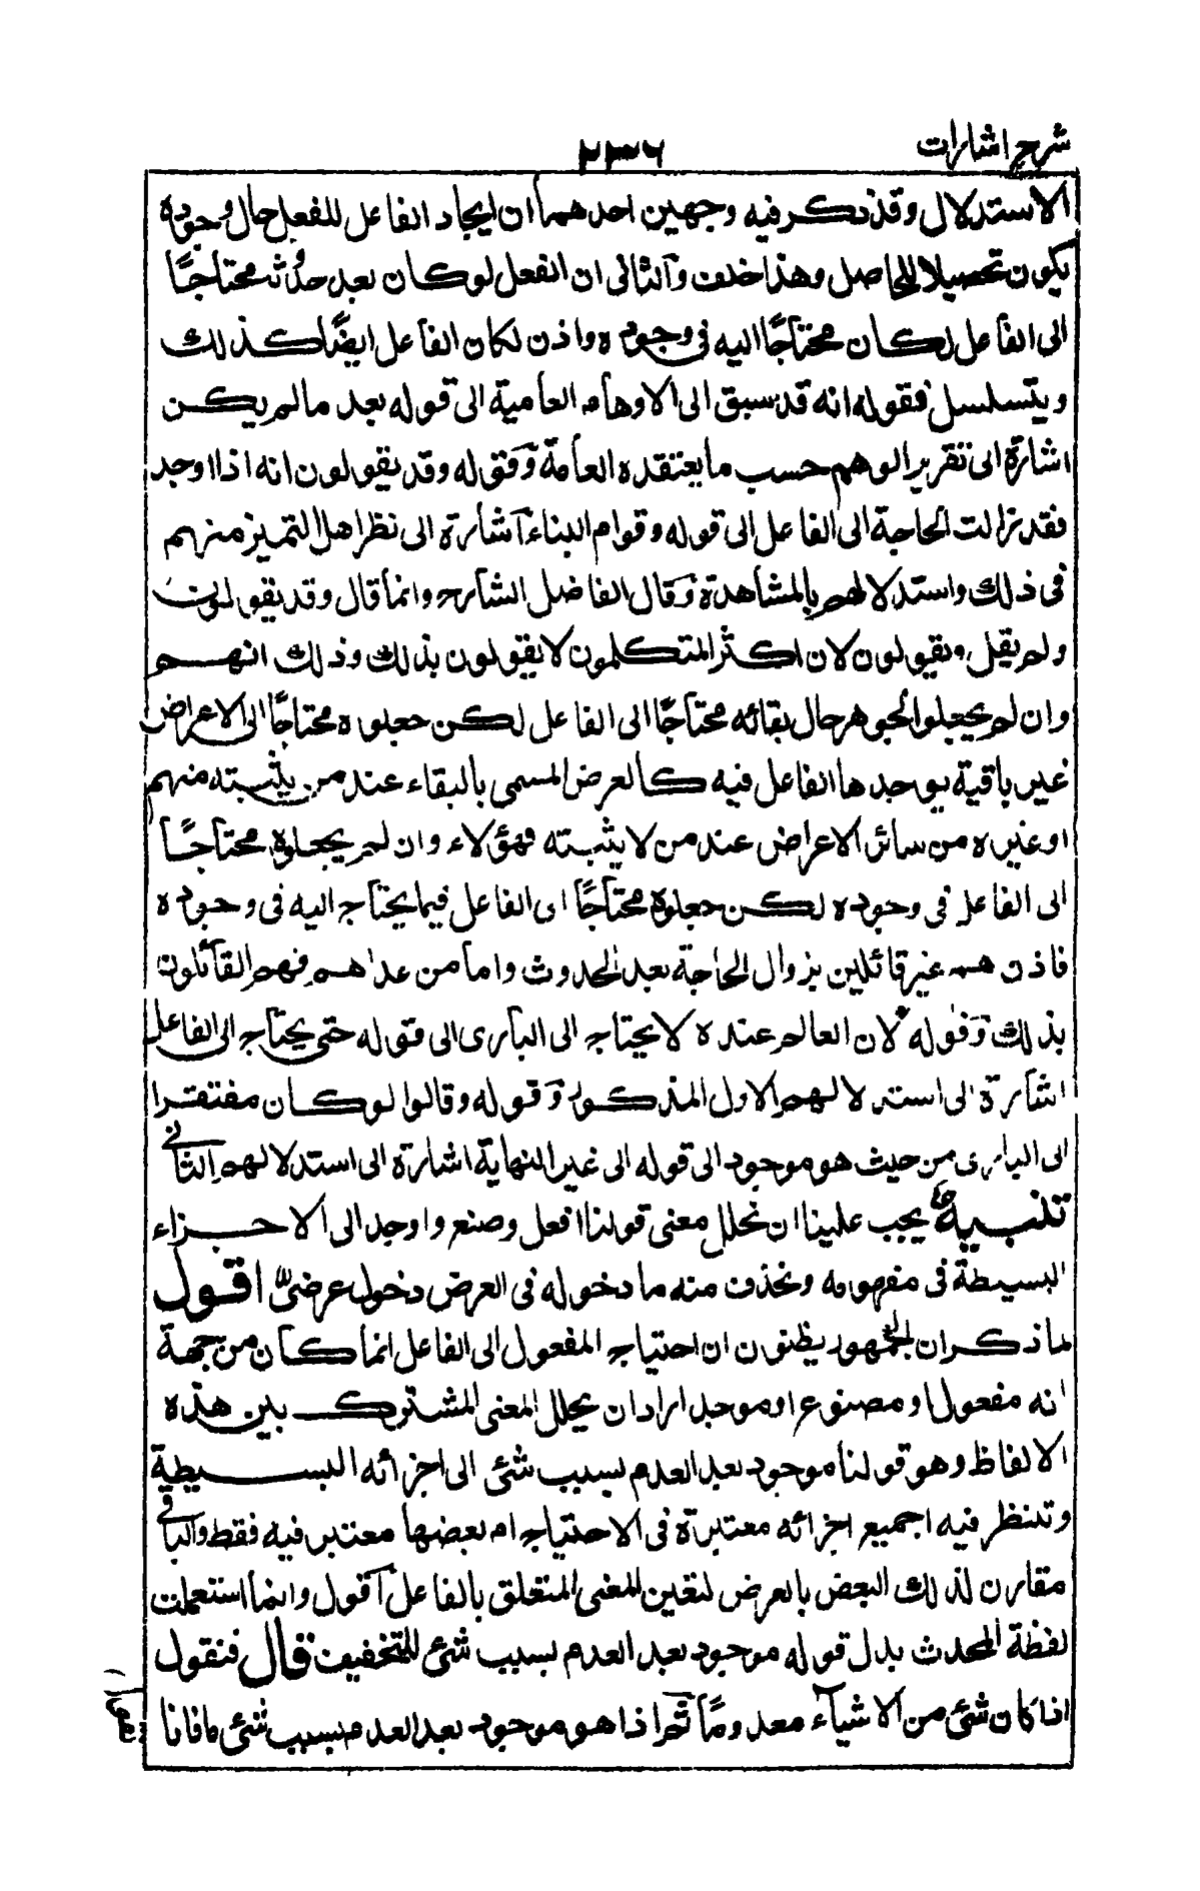 شرح اشارات
٢٣٦
الاستدلال وقد ذكر فيه وجهين احدهما ان ايجاد الفاعل للفعل حال وجوده
يكون تحصيلا للحاصل وهذا خلف والثانى ان الفعل لو كان بعد حدوثه محتاجًا
الى الفاعل لكان محتاجًا اليه فى وجوده واذن لكان الفاعل ايضًا كذلك
ويتسلسل فقوله انه قد سبق الى الاوهام العامية الى قوله بعد ما لم يكن
اشارة الى تقرير الوهم حسب ما يعتقده العامة وقوله وقد يقولون انه اذا اوجد
فقد زالت الحاجة الى الفاعل الى قوله وقوام البناء اشارة الى نظر اهل التميز منهم
فى ذلك واستدلالهم بالمشاهدة وقال الفاضل الشارح وانما قال وقد يقولون
ولم يقل ويقولون لان اكثر المتكلمون لا يقولون بذلك وذلك انهم
وان لم يجعلوا الجوهر حال بقائه محتاجًا الى الفاعل لكن جعلوه محتاجًا الى الاعراض
غير باقية يوجدها الفاعل فيه كالعرض المسمى بالبقاء عند من يثبته منهم
او غيره من سائر الاعراض عند من لا يثبته فهؤلاء وان لم يجعلوه محتاجًا
الى الفاعل فى وجوده لكن جعلوه محتاجًا الى الفاعل فيما يحتاج اليه فى وجوده
فاذن هم غير قائلين بزوال الحاجة بعد الحدوث واما من عداهم فهم القائلون
بذلك وقوله لان العالم عنده لا يحتاج الى البارى الى قوله حتى يحتاج الى الفاعل
اشارة الى استدلالهم الاول المذكور وقوله وقالوا لو كان مفتقرا
الى البارى من حيث هو موجود الى قوله الى غير النهاية اشارة الى استدلالهم الثانى
تنبيه يجب علينا ان نحلل معنى قولنا افعل وصنع واوجد الى الاجزاء
البسيطة فى مفهومه ونحذف منه ما دخوله فى العرض دخول عرضىّ اقول
لما ذكر ان الجمهور يظنون ان احتياج المفعول الى الفاعل انما كان من جهة
انه مفعول او مصنوع او موجد اراد ان يحلل المعنى المشترك بين هذه
الالفاظ وهو قولنا موجود بعد العدم بسبب شئ الى اجزائه البسيطة
وتنظر فيه اجميع اجزائه معتبرة فى الاحتياج ام بعضها معتبر فيه فقط والباقى
مقارن لذلك البعض بالعرض لتعين المعنى المتعلق بالفاعل اقول وانما استعملت
لفظة المحدث بدل قوله موجود بعد العدم بسبب شئ للتخفيف قال فنقول
اذا كان شئ من الاشياء معدومًا ثم اذا هو موجود بعد العدم بسبب شئ ما فانا